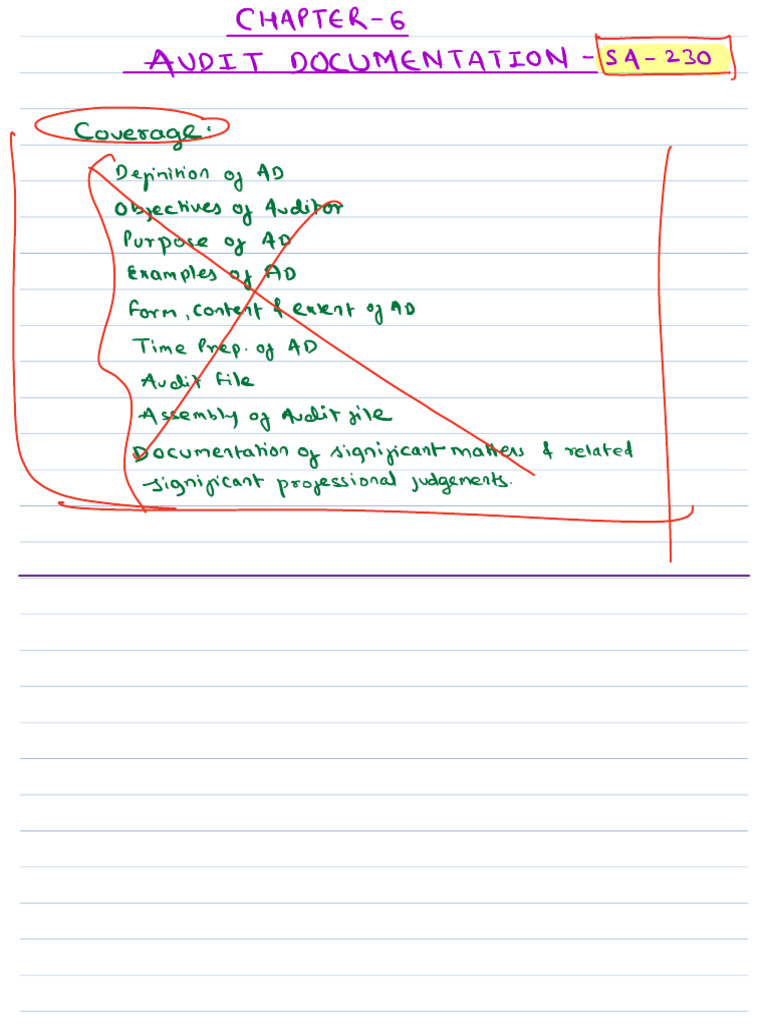 CHAPTER-6
AUDIT DOCUMENTATION - SA-230
Coverage:
Definition of AD
Objectives of Auditor
Purpose of AD
Examples of AD
Form, content & extent of AD
Time Prep. of AD
Audit file
Assembly of Audit file
Documentation of significant matters & related
significant professional judgements.